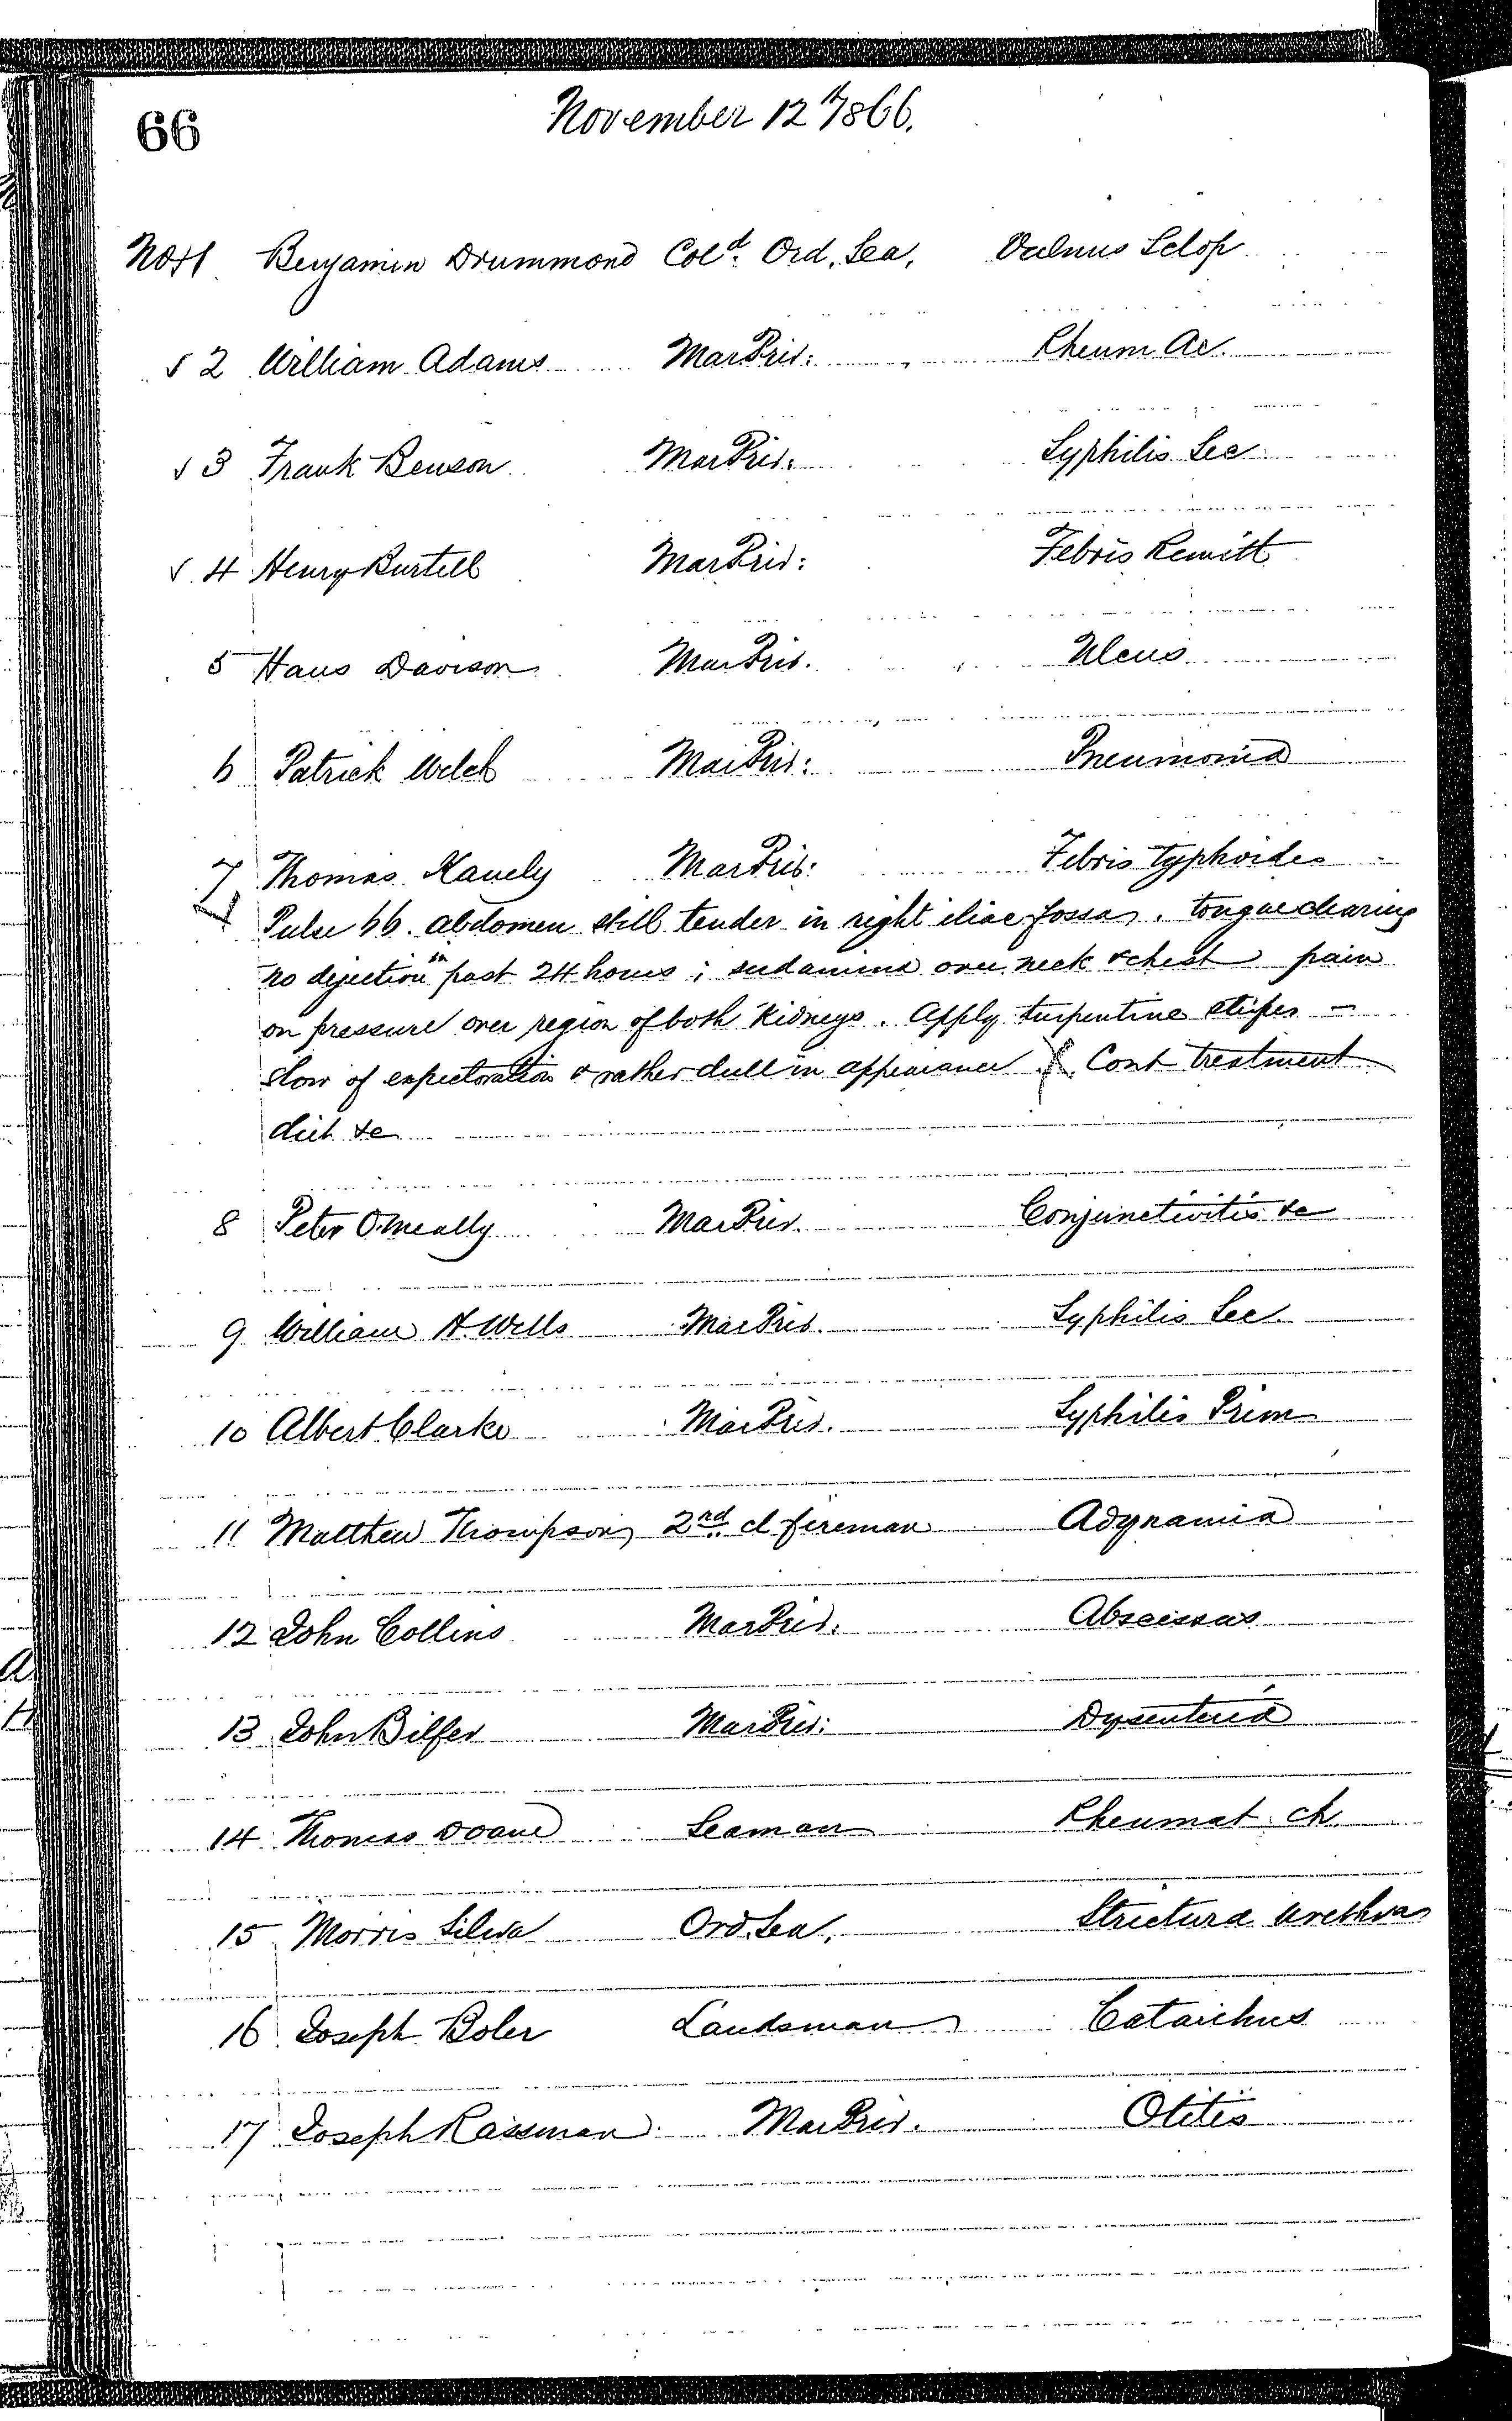 66
November 12th 1866.
No 1 Benjamin Drummond Cold. Ord. Sea, Vulnus Sclop
2 William Adams Mar Priv: Rheum Ac.
3 Frank Benson Mar Priv: Syphilis Sec
4 Henry Burtell Mar Priv: Febris Remitt
5 Hans Davison Mar Priv. Ulcus
6 Patrick Welch Mar Priv: Pneumonia
7 Thomas Kavely Mar Priv: Febris Typhoides
Pulse 66. Abdomen still tender in right iliac fossa. tongue clearing
no dejection in past 24 hours; sudamina over neck & chest pain
on pressure over region of both Kidneys. Apply turpentine stupes –
slow of expectoration & rather dull in appearance. Cont treatment
diet &c
8 Peter O.Meally Mar Priv. Conjunctivitis &c
9 William H. Wells Mar Priv. Syphilis Sec.
10 Albert Clarke Mar Priv. Syphilis Prim
11 Matthew Thompson 2nd cl fireman Adynamia
12 John Collins Mar Priv: Abscessus
13 John Bilfer Mar Priv: Dysenteria
14 Thomas Doane Seaman Rheumat. Ch.
15 Morris Silva Ord. Sea, Strictura Urethra
16 Joseph Boler Landsman Catarrhus
17 Joseph Rassman Mar Priv. Otitis